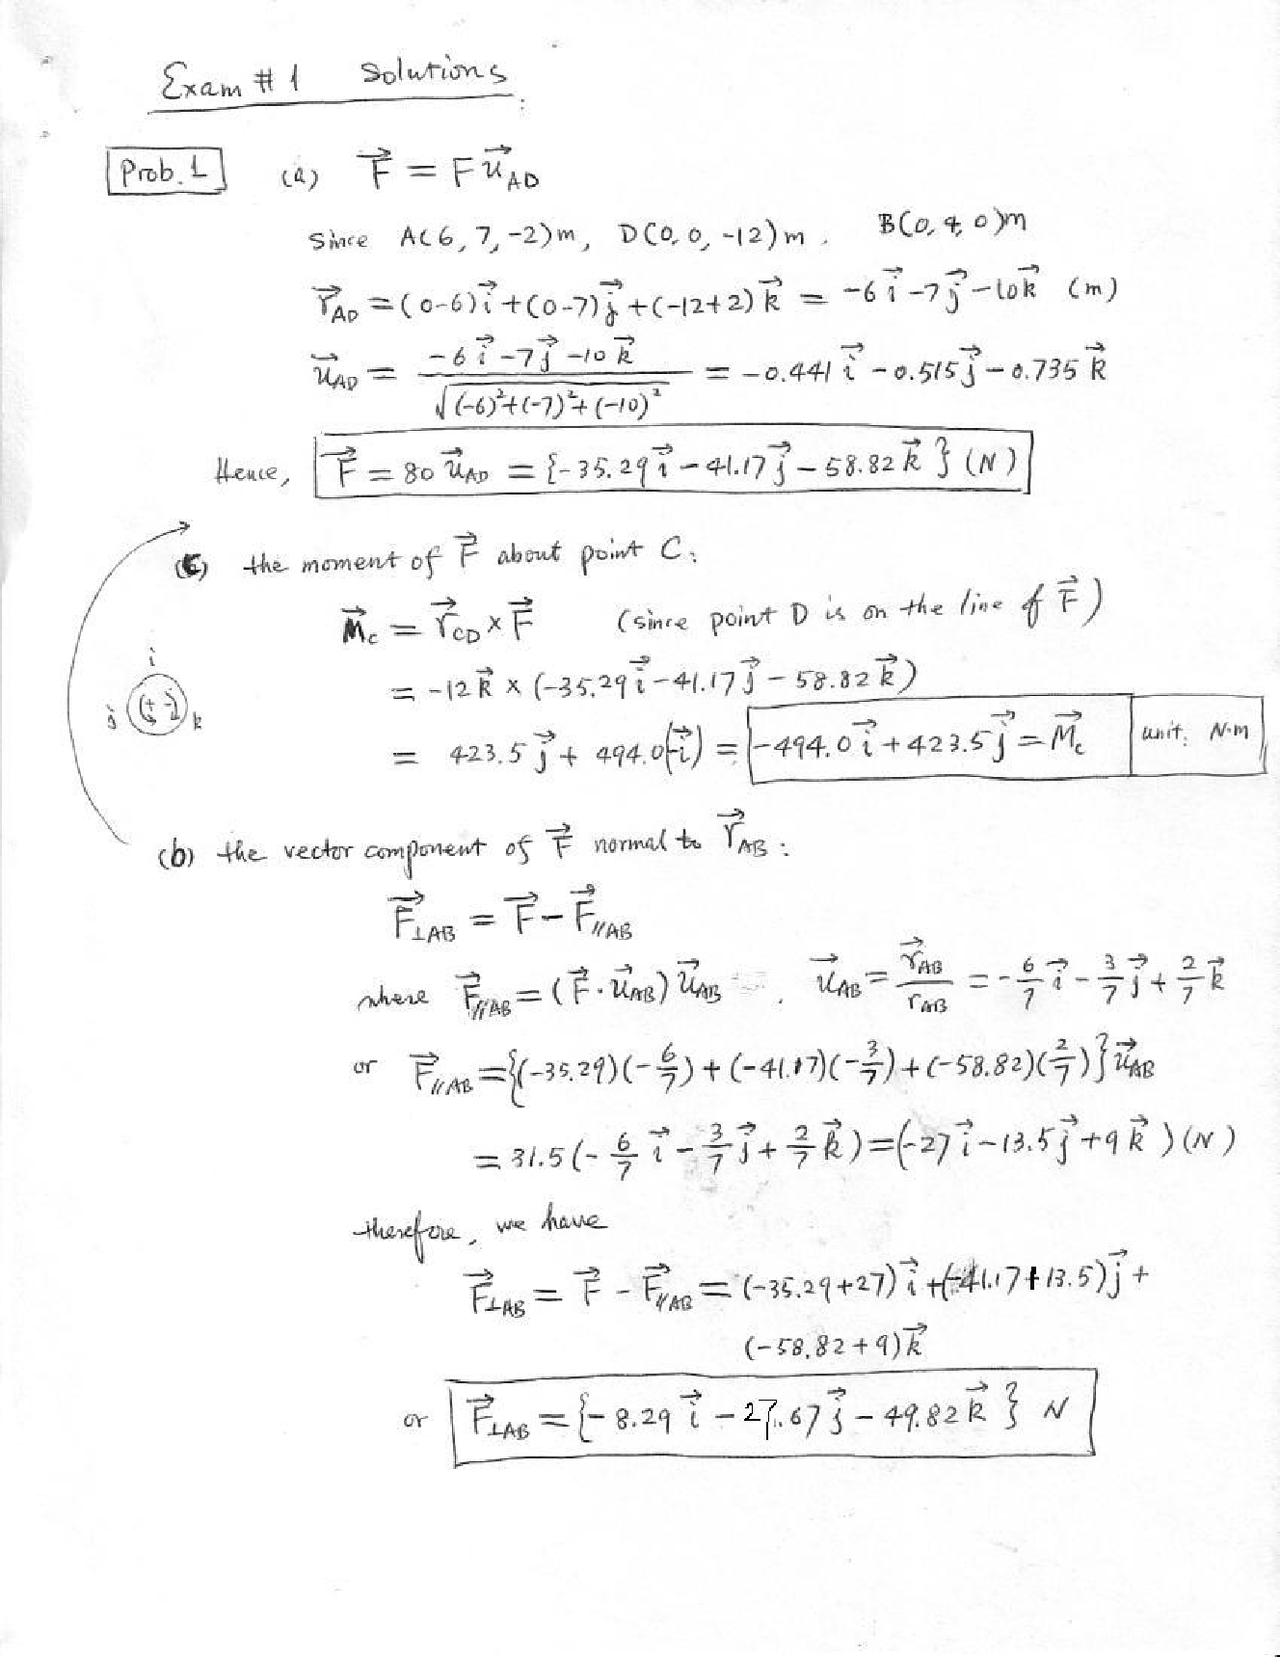 Exam # 1 Solutions
Prob. 1 (a) $\vec{F} = F\vec{u}_{AD}$
Since A(6, 7, -2)m, D(0, 0, -12)m. B(0, 4, 0)m
$\vec{r}_{AD} = (0-6)\vec{i} + (0-7)\vec{j} + (-12+2)\vec{k} = -6\vec{i} - 7\vec{j} - 10\vec{k}$ (m)
$\vec{u}_{AD} = \frac{-6\vec{i} - 7\vec{j} - 10\vec{k}}{\sqrt{(-6)^2+(-7)^2+(-10)^2}} = -0.441\vec{i} - 0.515\vec{j} - 0.735\vec{k}$
Hence, $\vec{F} = 80\vec{u}_{AD} = \{-35.29\vec{i} - 41.17\vec{j} - 58.82\vec{k}\}$ (N)
(c) the moment of $\vec{F}$ about point C:
$\vec{M}_c = \vec{r}_{CD} \times \vec{F}$ (since point D is on the line of $\vec{F}$)
$= -12\vec{k} \times (-35.29\vec{i} - 41.17\vec{j} - 58.82\vec{k})$
i
j (+ -) k
$= 423.5\vec{j} + 494.0(-\vec{i}) = -494.0\vec{i} + 423.5\vec{j} = \vec{M}_c$ unit: N·m
(b) the vector component of $\vec{F}$ normal to $\vec{r}_{AB}$:
$\vec{F}_{\perp AB} = \vec{F} - \vec{F}_{//AB}$
where $\vec{F}_{//AB} = (\vec{F} \cdot \vec{u}_{AB})\vec{u}_{AB}$, $\vec{u}_{AB} = \frac{\vec{r}_{AB}}{r_{AB}} = -\frac{6}{7}\vec{i} - \frac{3}{7}\vec{j} + \frac{2}{7}\vec{k}$
or $\vec{F}_{//AB} = \{(-35.29)(-\frac{6}{7}) + (-41.17)(-\frac{3}{7}) + (-58.82)(\frac{2}{7})\}\vec{u}_{AB}$
$= 31.5(-\frac{6}{7}\vec{i} - \frac{3}{7}\vec{j} + \frac{2}{7}\vec{k}) = (-27\vec{i} - 13.5\vec{j} + 9\vec{k})$ (N)
therefore, we have
$\vec{F}_{\perp AB} = \vec{F} - \vec{F}_{//AB} = (-35.29+27)\vec{i} + (-41.17+13.5)\vec{j} +$
$(-58.82+9)\vec{k}$
or $\vec{F}_{\perp AB} = \{-8.29\vec{i} - 27.67\vec{j} - 49.82\vec{k}\}$ N